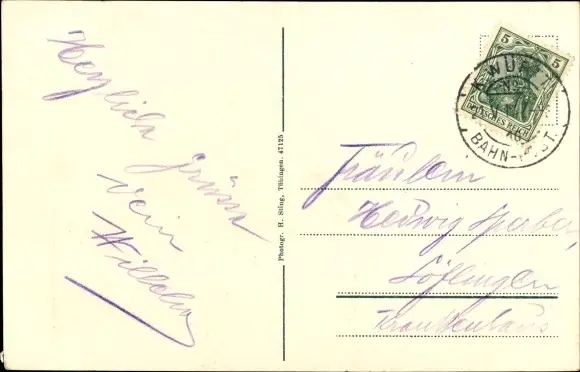 Herzliche
Grüsse
Dein
Wilhelm
Photogr. H. Sting, Tübingen. 47125
5 5
DEUTSCHES REICH
K. WÜ
BAHN-POST.
Fräulein
Hedwig Sperber,
Söflingen
Krankenhaus